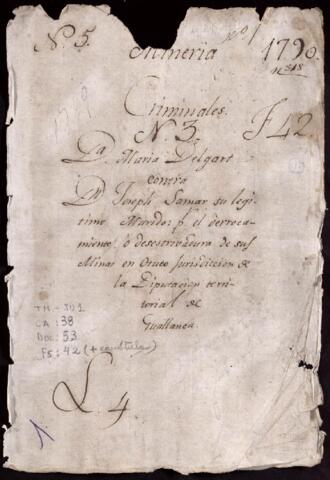 Nº 5.
Mineria
1790.
Criminales.
Nº 3.
F 42
Dª Maria Delgart
contra
Dn Joseph Lamar su legi
timo Marido: p.r el derroca-
miento, ó desestrivadura de sus
Minas en Otuco Jurisdiccion de
la Diputacion terri-
torial de
Guallanca.
TM-JO1
CA: 38
DOC: 53
FS: 42 (+ carátula)
L 4
1